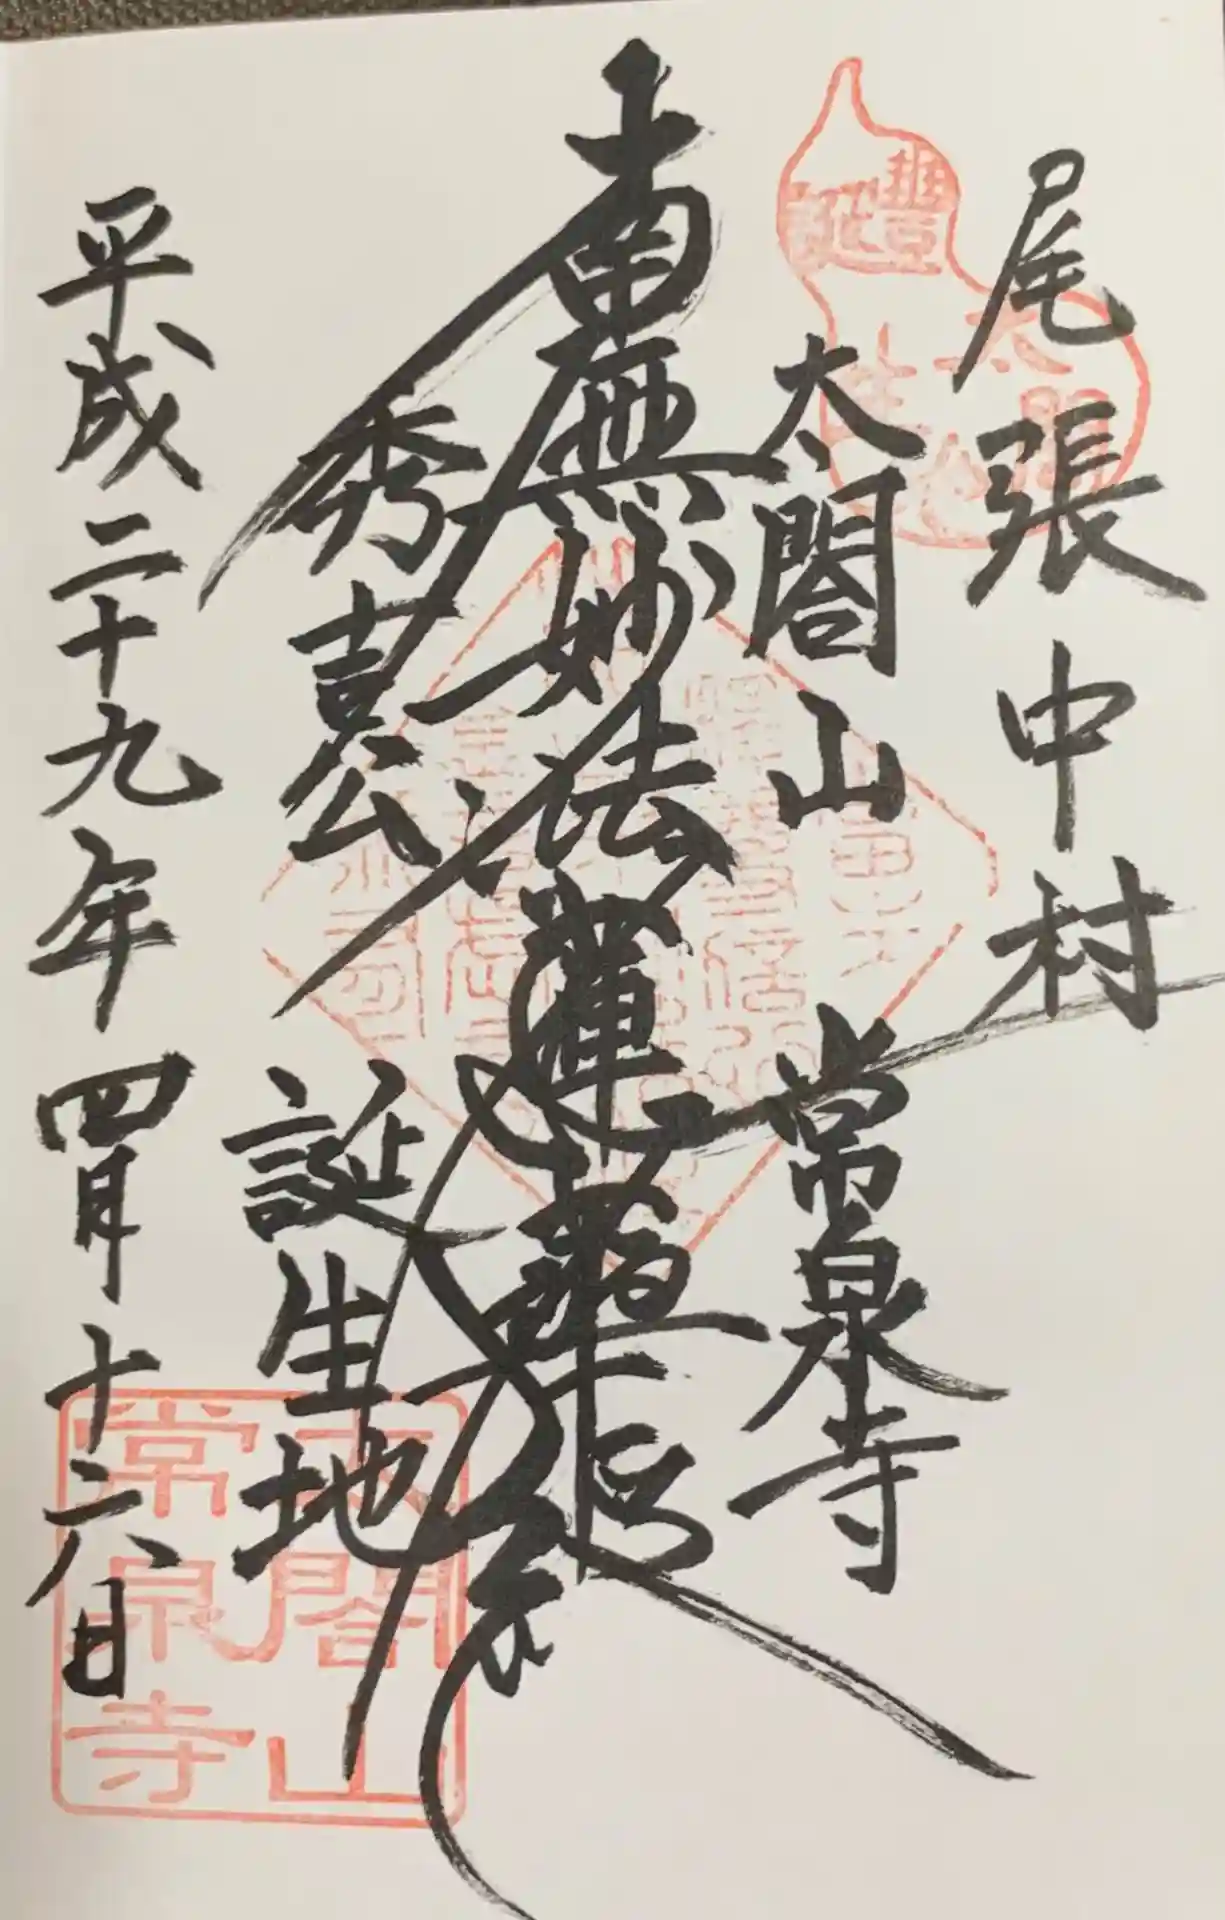 尾張中村
太閤山 常泉寺
南無妙法蓮華経
秀吉公 誕生地
平成二十九年四月十六日
豐
誕
太閤
生
太閤山
常泉寺